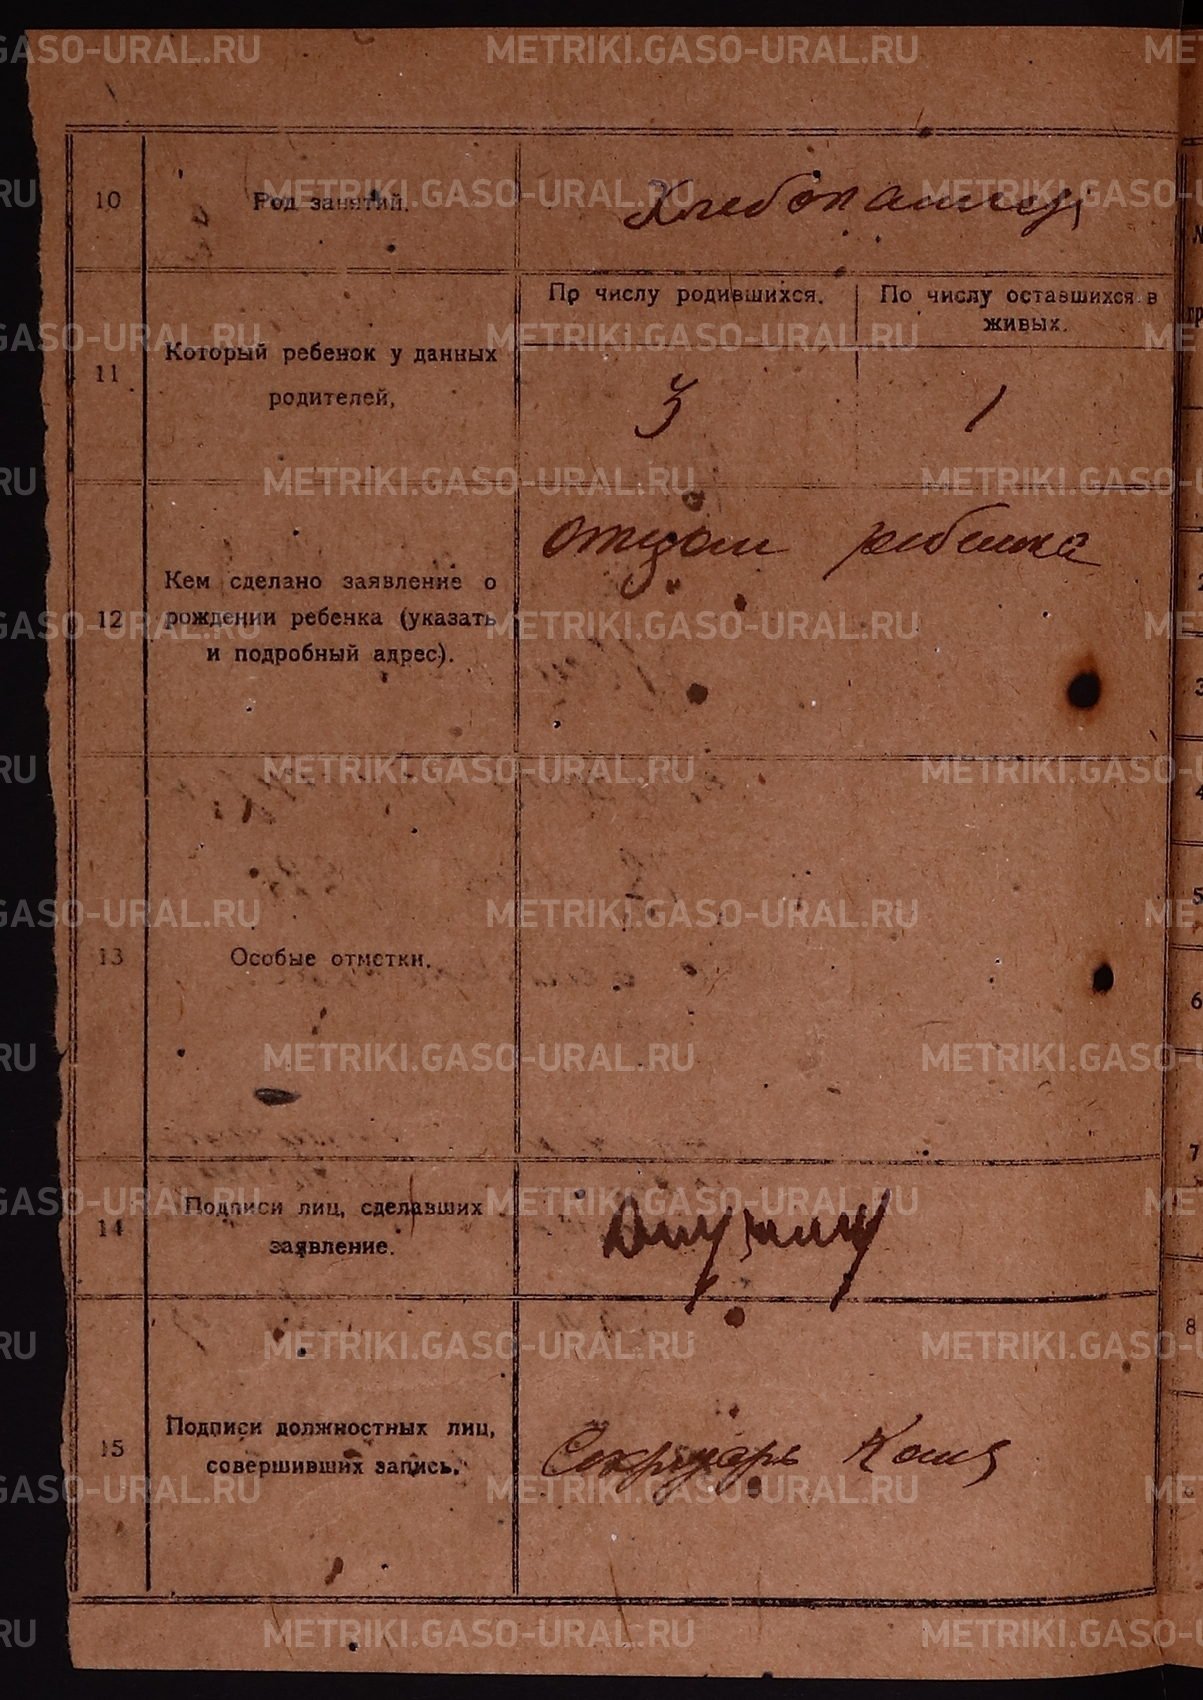 METRIKI.GASO-URAL.RU
10 Род занятий. Хлебопашец
11 Который ребенок у данных
родителей,
По числу родившихся.
По числу оставшихся в
живых.
3 1
12 Кем сделано заявление о
рождении ребенка (указать
и подробный адрес).
отцом ребенка
13 Особые отметки.
14 Подписи лиц, сделавших
заявление.
15 Подписи должностных лиц,
совершивших запись.
Секретарь
2
3
4
5
6
7
8